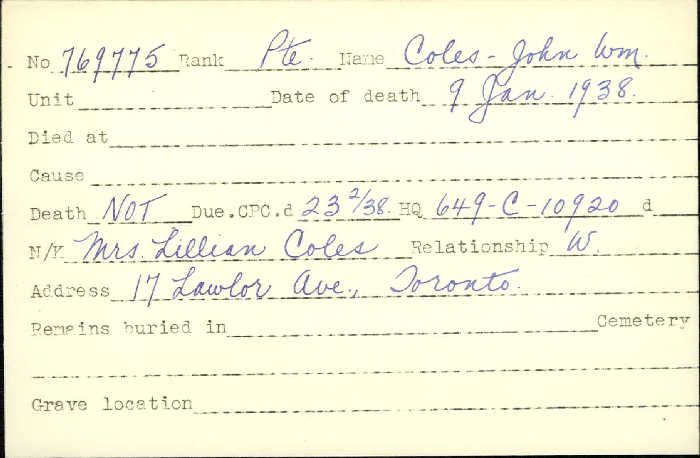 No 769775 Rank Pte. Name Coles - John Wm.
Unit Date of death 9 Jan. 1938.
Died at
Cause
Death NOT Due.CPC.d 23 2/38. HQ 649-C-10920 d
N/K Mrs. Lillian Coles Relationship W.
Address 17 Lawlor Ave., Toronto.
Remains buried in Cemetery
Grave location